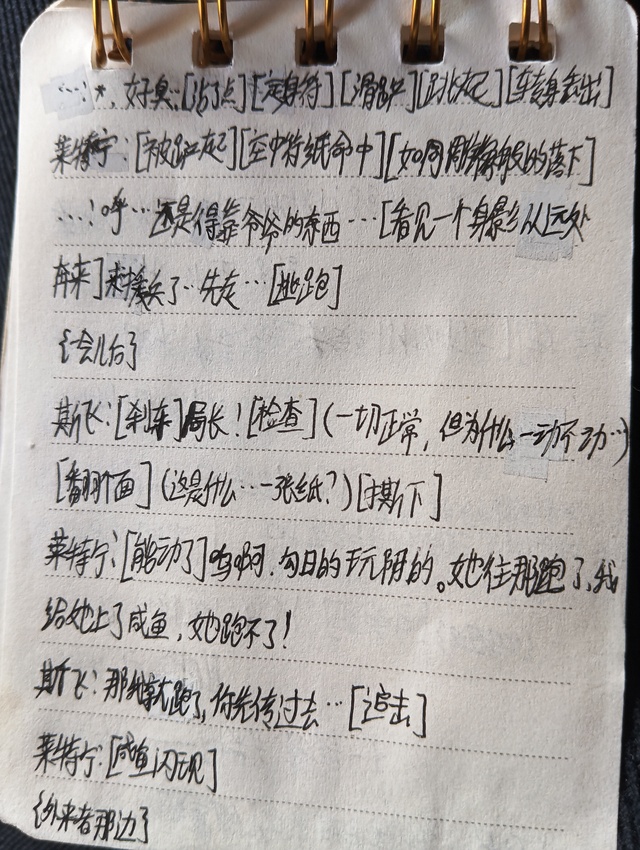 …！*，好臭…[沾了点][定身符][滑跪][跳起][转身丢出]
莱特宁：[被跪起][空中符纸命中][如同雕像般的落下]
…！呼…还是得靠爷爷的东西…[看见一个身影从远处
奔来]来援兵了…先走…[逃跑]
{一会儿后}
斯飞：[刹车]局长！[检查](一切正常，但为什么一动不动…)
[翻个面](这是什么…一张纸？)[撕下]
莱特宁：[能动了]呜啊，勾日的玩阴的。她往那跑了，我
给她上了咸鱼，她跑不了！
斯飞：那就跑了，你先传过去…[追击]
莱特宁：[咸鱼闪现]
{外来者那边}